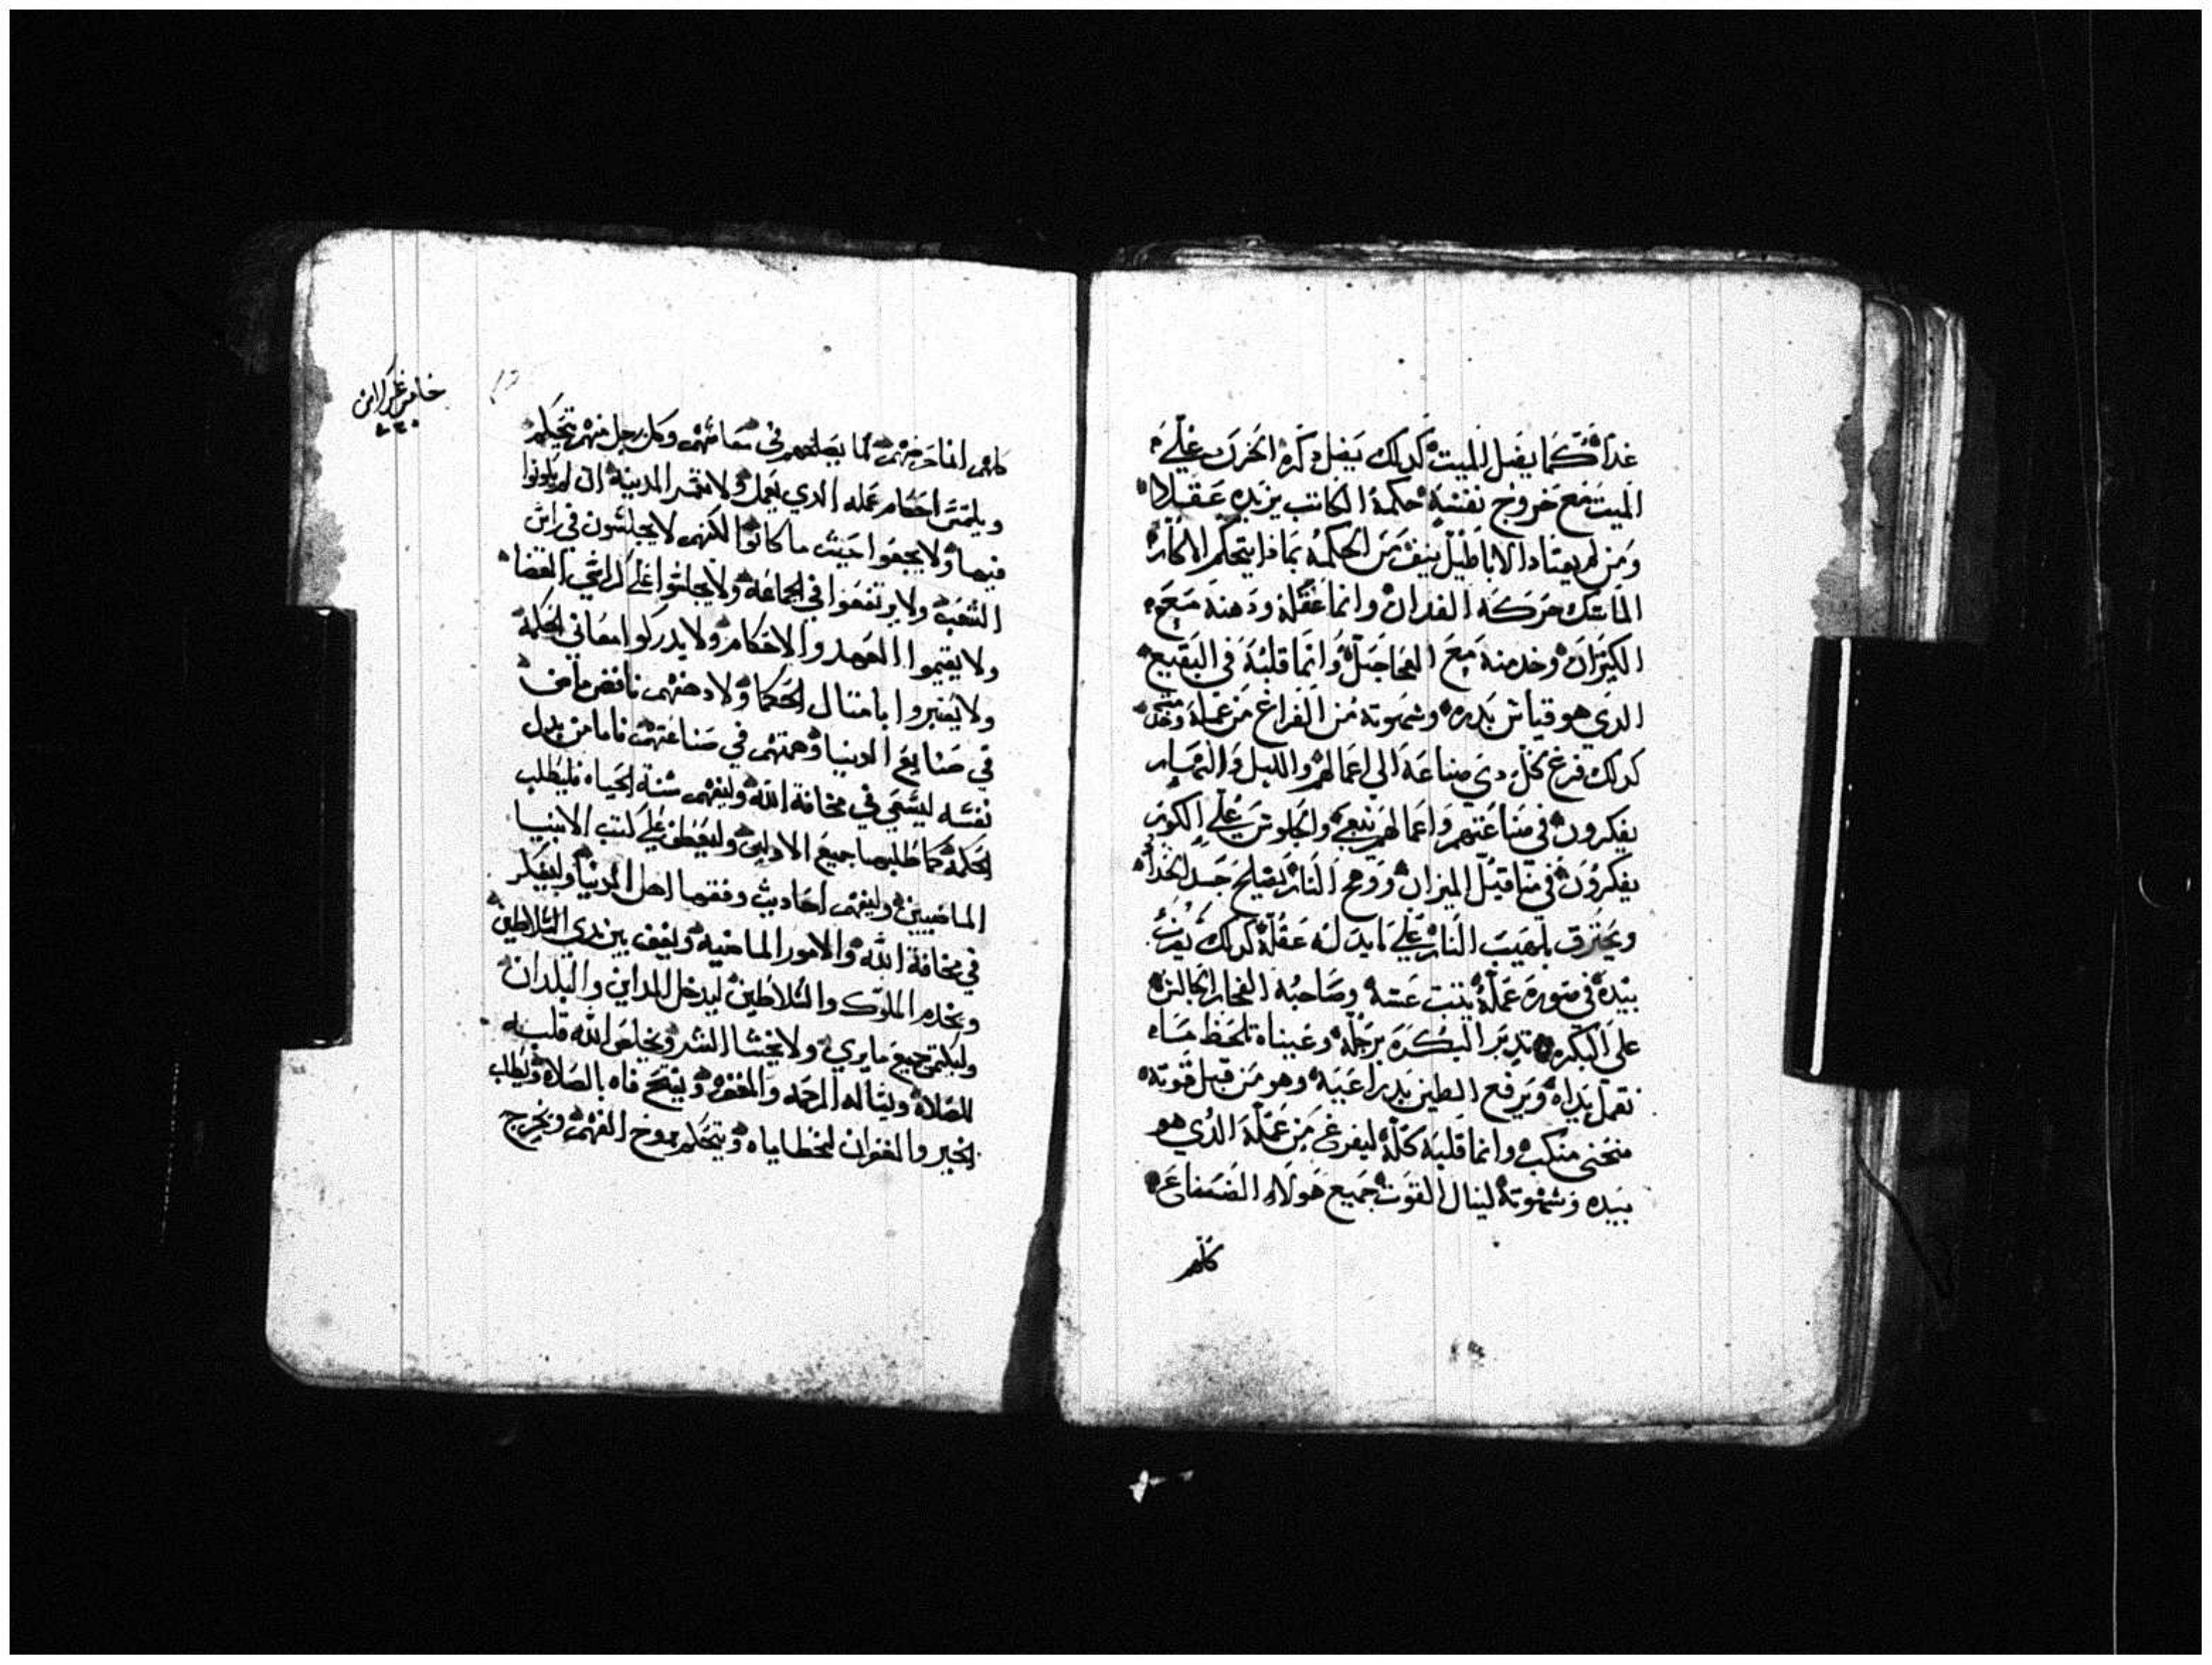 غداً كما يضل الميت كذلك يضل ذكره الحزن علي
الميت مع خروج نفسه حكمة الكاتب يزيده عقلا
ومن لم يعتاد الاباطيل ينف من الحكمه بماذا يتحكم الاكار
الماسك حركة الفدان وانما عقله ودهنه مع
الكيزان وخدمته مع العجاجل وانما قلبه في البقيع
الدي هو قياس بدره وشهوته من الفراغ من عمله
كدلك فرغ كل دي صناعة الي اعمالهم والليل والنهار
يفكرون في صناعتهم واعمالهم والجلوس علي الكور
يفكرون في متاقيل الميزان ووهج النار يصلح جسد الحدا
ويحترق بلهيب النار علي عقله كدلك
بيده في صورة عمله وصاحبه الفخار الجالس
على البكره تدير البكره برجله وعيناه تلحظ
تعمل يداه ويرفع الطين وهو من قبل قوته
منحني منكب وانما قلبه كله ليفرغ من عمله الدي هو
بيده وشهوته لينال القوت جميع هولاء الصناع
كلهم
خامس عشر
كلهم في معاشهم وكل رجل منهم يتحكم
ويلتمس احكام عمله الدي يعمل ولا تعمر المدينه ان لم يكونوا
فيها ولا يجيعوا حيث ما كانوا لكنهم لا يجلسون في راس
الشعب ولا يرتفعوا في الجماعه ولا يجلسوا علي كراسي القضا
ولا يقيموا العهد والاحكام ولا يدركوا معاني الحكمة
ولا يعتبروا بامتال الحكما
في صنايع الدنيا وهمتهم في صناعتهم فاما من بدل
نفسه ليسعي في مخافة الله وليفهم سنة الحياه فليطلب
الحكمة كما طلبها جميع الاولين وليعطف علي كتب الانبيا
الماضيين وليفهم احاديث وفقها اهل الدنيا وليفكر
في مخافة الله والامور الماضيه وليقف بين يدي السلاطين
ويخدم الملوك والسلاطين ليدخل المداين والبلدان
وليكتم جميع ما يري ولا يخشا الشر الله قلبه
للصلاة ويساله الرحمه والمغفره ويفتح فاه بالصلاه ويطلب
الخير والغفران لخطاياه ويتحكم بروح الفهم ويخرج